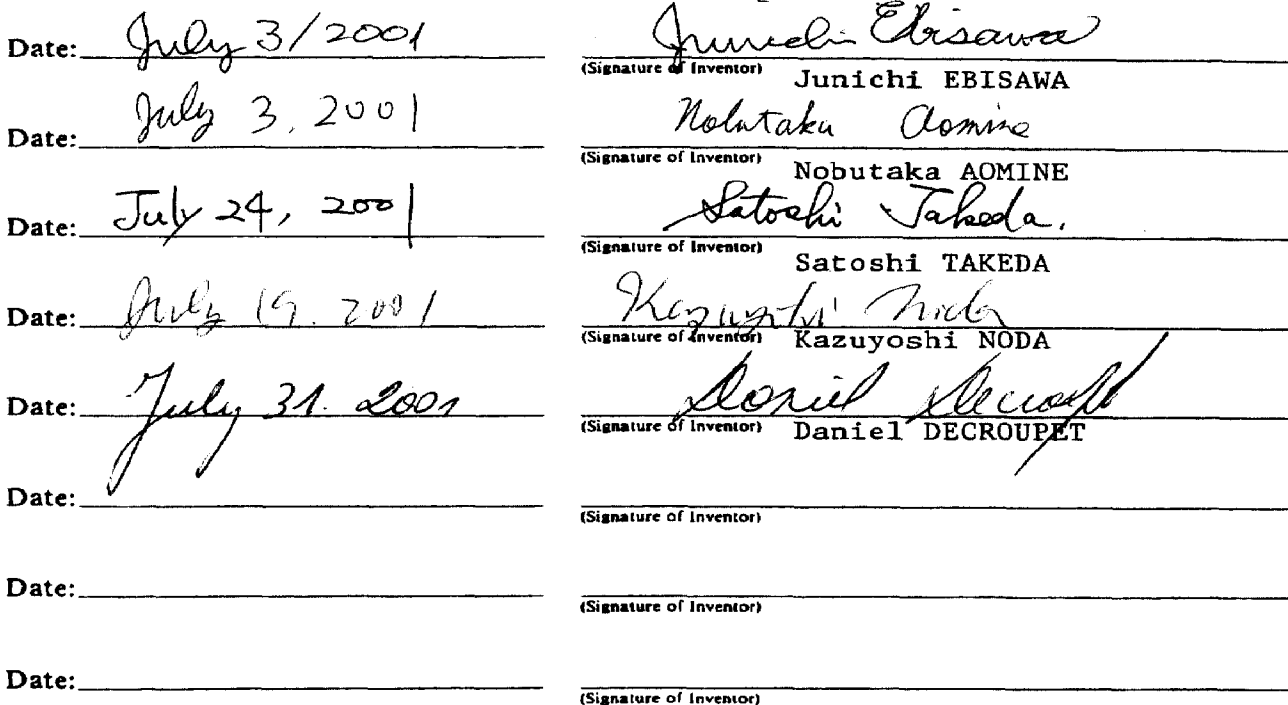 Date: July 3/2001 Junichi Ebisawa
(Signature of Inventor) Junichi EBISAWA
Date: July 3, 2001 Nobutaka Aomine
(Signature of Inventor) Nobutaka AOMINE
Date: July 24, 2001 Satoshi Takeda.
(Signature of Inventor) Satoshi TAKEDA
Date: July 19. 2001 Kazuyoshi Noda
(Signature of Inventor) Kazuyoshi NODA
Date: July 31. 2001 Daniel Decroupet
(Signature of Inventor) Daniel DECROUPET
Date:
(Signature of Inventor)
Date:
(Signature of Inventor)
Date:
(Signature of Inventor)